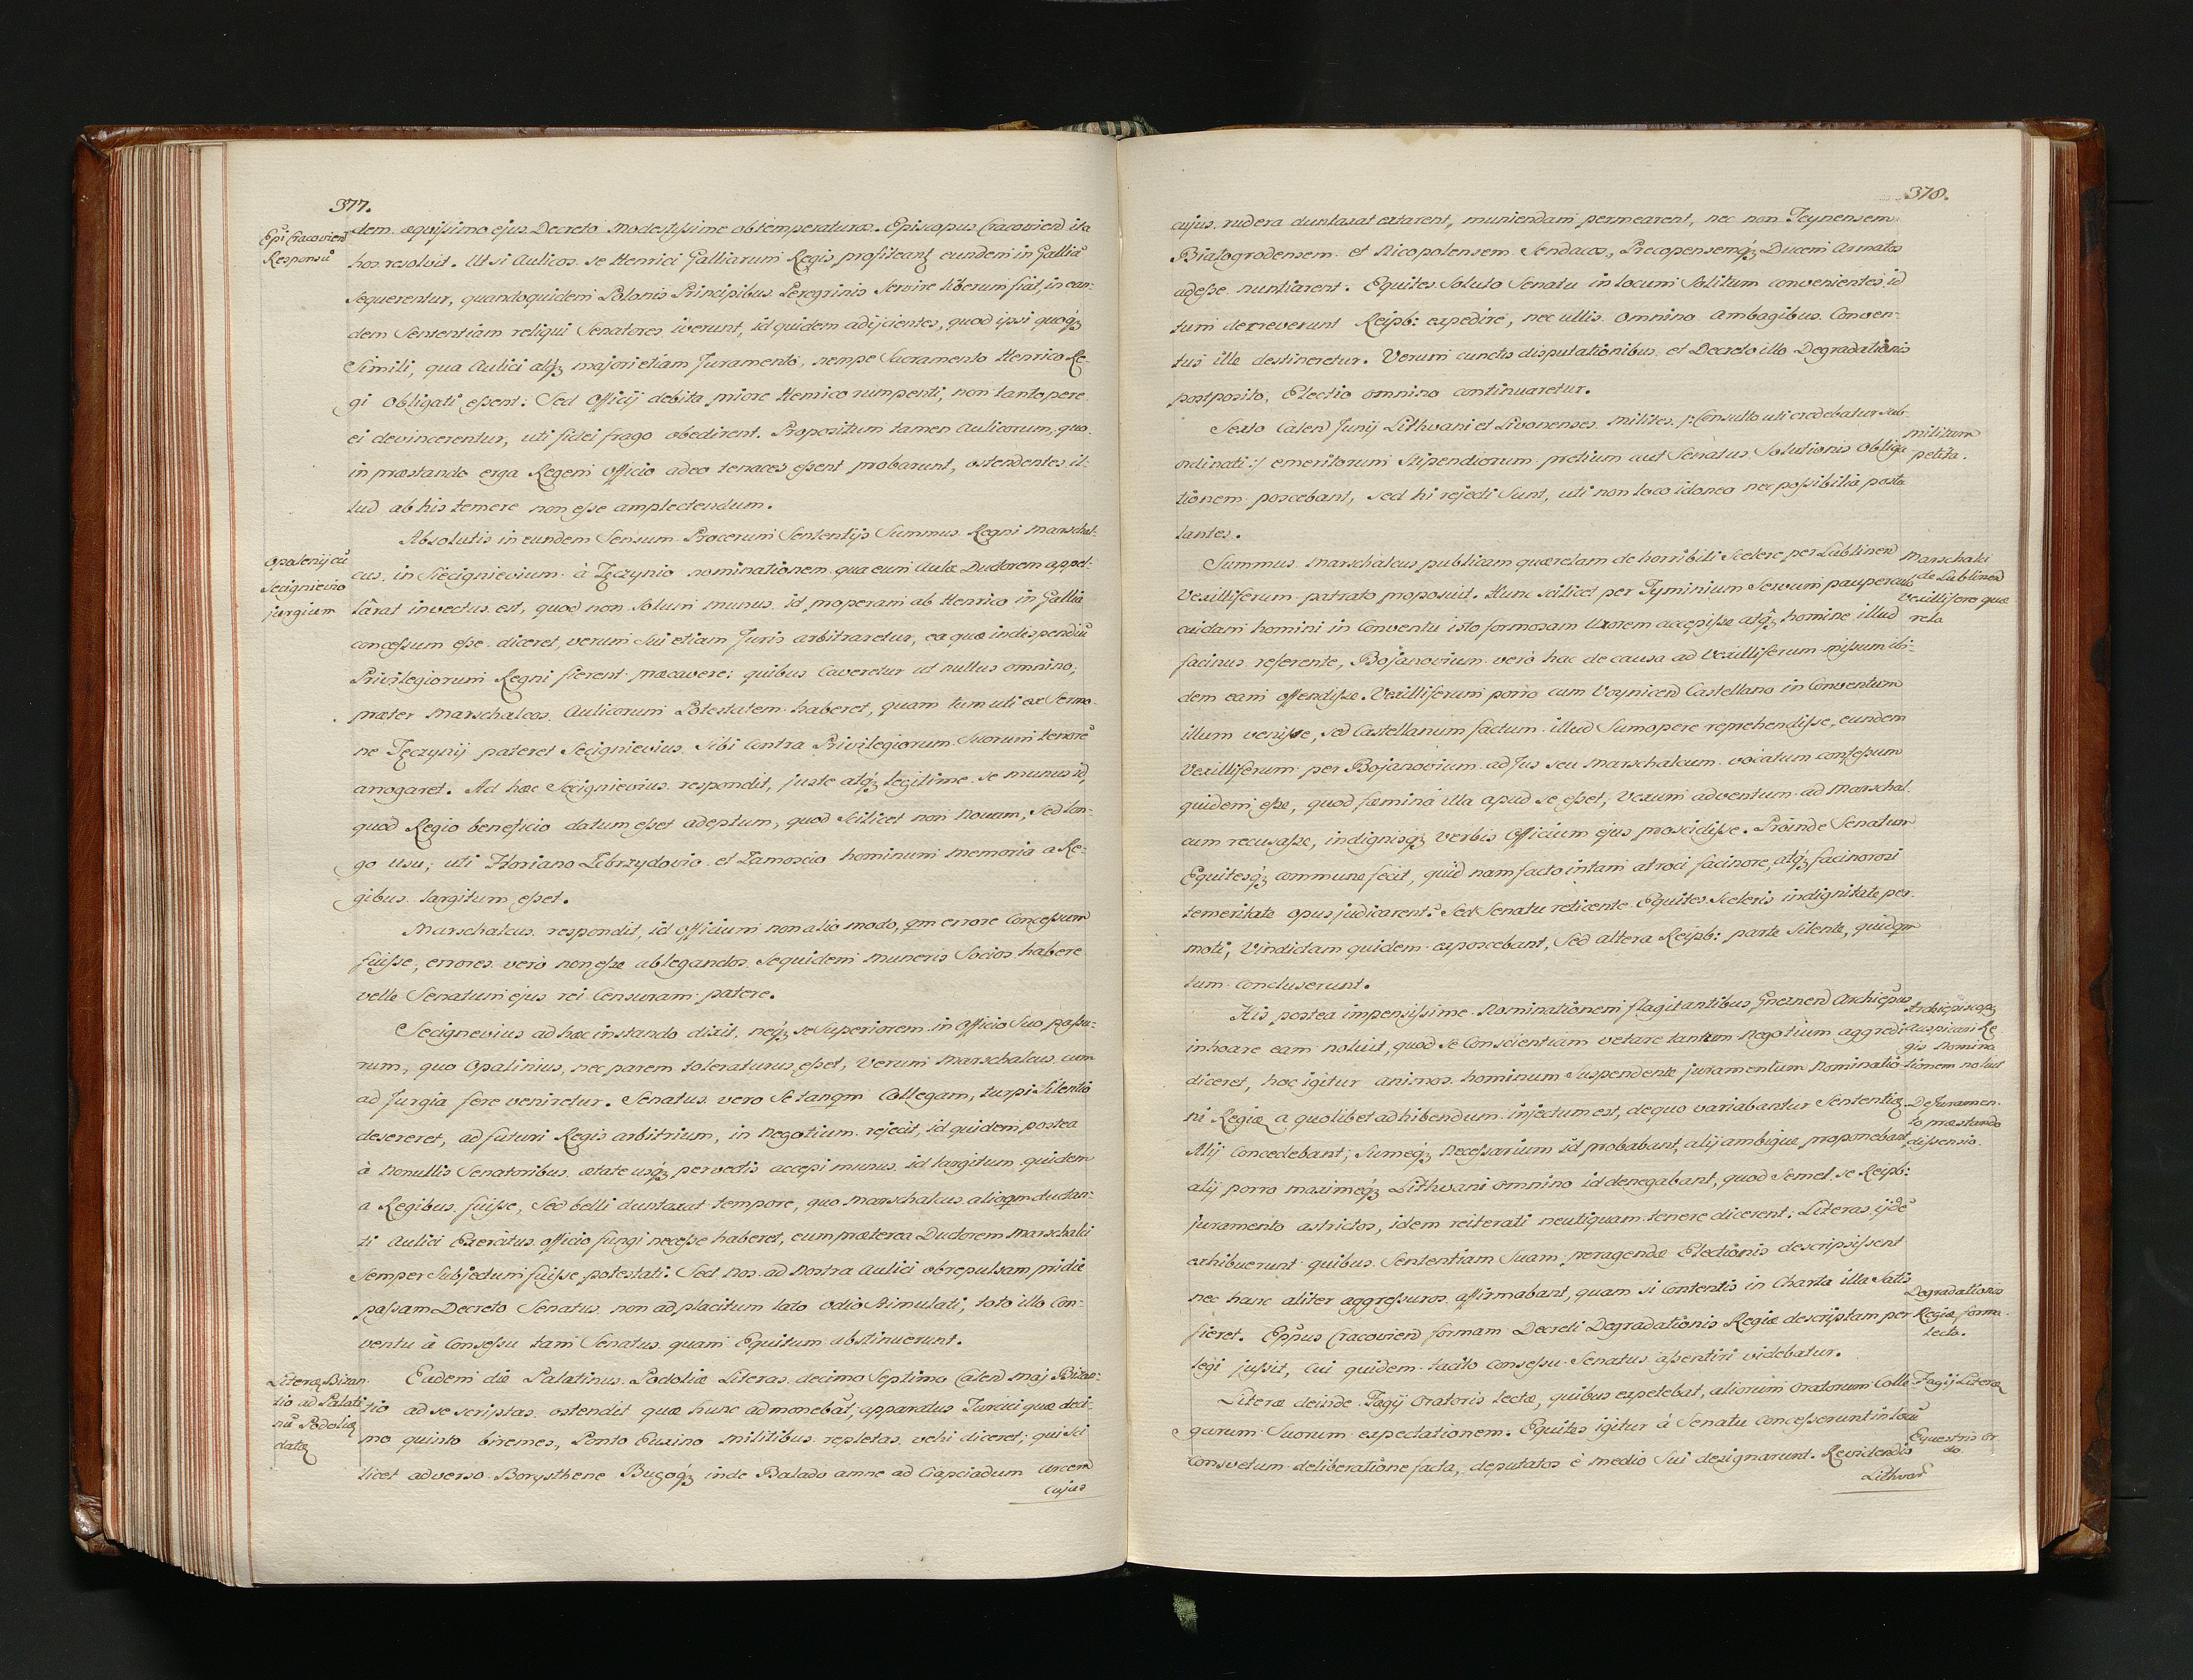 377.
Epi Cracovien
Responsũ
dem æquissimo ejus Decreto modestissime obtemperaturos. Episcopus Cracovien ita
hos resolvit. Ut si Aulicos se Henrici Galliarum Regis profiteantq eundem in Galliã
sequerentur, quandoquidem Polonis Principibus Peregrinis servire liberum fiat, in ean-
dem Sententiam reliqui Senatores iverunt, id quidem adijcientes, quod ipsi quoqȝ
Simili, qua Aulici atqȝ majori etiam Juramento, nempe Sacramento Henrico Re-
gi obligati essent: Sed Officij debita priore Henrico rumpenti, non tantopere
ei devincerentur, uti fidei frago obedirent. Propositum tamen Aulicorum, quo
in præstando erga Regem Officio adeo tenaces essent probarunt, ostendentes il-
lud ab his temere non esse amplectendum.
Absolutis in eundem Sensum Procerum Sententijs Summus Regni Marschal-
Opalenij cũ
Secignievio
jurgium
cus in Siecignievium à Tęczynio nominationem qua eum Aulæ Ductorem appel-
lârat invectus est, quod non solum munus id properam ab Henrico in Gallia
concessum esse diceret, verum sui etiam Juris arbitraretur, ea quæ in dispendiũ
Privilegiorum Regni fierent præcavere: quibus Caveretur ut nullus omnino,
præter Marschalcos Aulicorum Potestatem haberet, quam tum uti ex Sermo-
ne Tęczynij pateret Secignievius sibi Contra Privilegiorum suorum tenorẽ
arrogaret. Ad hæc Secignievius respondit, juste atqȝ legitime se munus id,
quod Regio beneficio datum esset adeptum, quod Scilicet non Novum, Sed lon-
go usu, uti Floriano Zebrzydovio et Zamoscio hominum memoria a Re-
gibus largitum esset.
Marschalcus respondit, id Officium non alio modo, qm errore Concessum
fuisse, errores verò non esse ablegandos. Sequidem muneris Socios habere
velle Senatum ejus rei Censuram patere.
Secignevius ad hæc instando dixit, neqȝ se Superiorem in Officio Suo passu-
rum, quo Opalinius, nec parem toleraturus esset, Verum Marschalcus cum
ad Jurgia fere veniretur. Senatus vero Se tanqm Collegam, turpi Silentio
desereret, ad futuri Regis arbitrium, in Negotium rejecit, id quidem postea
à Nonullis Senatoribus ætate usqȝ pervectis accepi munus id largitum quidem
a Regibus fuisse, Sed belli duntaxat tempore, quo Marschalcus alioqm ductan-
ti Aulici Exercitus officio fungi necesse haberet, eum præterea Ductorem Marschalci
Semper Subjectum fuisse potestati. Sed Nos ad Nostra Aulici ob repulsam pridie
passam Decreto Senatus non ad placitum lato odio Stimulati, toto illo Con-
ventu à Consessu tam Senatus quam Equitum abstinuerunt.
Literæ Bizan
tio ad Palati
nũ Podoliæ
datæ
Eadem die Palatinus Podoliæ Literas decimo Septimo Calend Maj Bizan-
tio ad se scriptas ostendit quæ hunc admonebãt, apparatus Turcici quæ deci-
mo quinto biremes, Ponto Euxino militibus repletas vehi diceret; qui sci
licet adverso Borysthene Bugoqȝ inde Balado amne ad Czapciadum arcem
cujus
378.
cujus rudera duntaxat extarent, muniendam permearent, nec non Teynensem
Bialogrodensem et Nicopolensem Sendacos, Precopensemqȝ Ducem Armatos
adesse nuntiarent. Equites Soluto Senatu in locum Solitum convenientes, id
tum decreverunt Reipb: expedire, nec ullis omnino ambagibus Conven-
tus ille destineretur. Verum cunctis disputationibus et Decreto illo Degradationis
postposito, Electio omnino continuaretur.
Sexto Calend Junij Lithvani et Livonenses milites /: Consulto uti credebatur sub-
militum
petita.
ordinati :/ emeritorum Stipendiorum pretium aut Senatus Solutionis Obliga
tionem poscebant, sed hi rejecti Sunt, uti non loco idoneo nec possibilia postu
lantes.
Summus Marschalcus publicam quærelam de horribili Scelere per Lublinen
Marschalci
de Lublinen
Vexillifero quæ
rela
Vexilliferum patrato proposuit. Hunc scilicet per Tyminium Servum pauperculo
cuidam homini in Conventu isto formosam Uxorem accepisse atqȝ homine illud
facinus referente, Bojanovium verò hac de causa ad Vexilliferum missum ibi-
dem eam offendisse. Vexilliferum porro cum Voynicen Castellano in Conventum
illum venisse, sed Castellanum factum illud Summopere reprehendisse, eundem
Vexilliferum per Bojanovium ad Jus seu Marschalcum vocatum confessum
quidem esse, quod fæmina illa apud se esset, Verum adventum ad Marschal-
cum recusasse, indignisqȝ verbis Officium ejus proscidisse. Proinde Senatum
Equitesqȝ commune fecit, quid nam facto in tam atroci facinore, atqȝ facinorosi
temeritate opus judicarent? Sed Senatu reticente Equites Sceleris indignitate per
moti, Vindictam quidem exposcebant, Sed altera Reipb: parte Silente, quidqm
tum concluserunt.
His postea impensissime Nominationem flagitantibus Gneznen Archiepus
Archiepiscopȝ
auspicari Re
gis Nomina
tionem noluit
inhoare eam noluit, quod se Conscientiam vetare tantum Negotium aggredi
diceret, hoc igitur animos hominum Suspendente juramentum Nominatio-
ni Regiæ a quolibet adhibendum injectum est, de quo variabantur Sententiæ
De Juramen-
to præstando
dissensio.
Alij Concedebant; Summeqȝ Necessarium id probabant, alij ambigue proponebant,
alij porro maximeqȝ Lithvani omnino id denegabant, quod Semel se Reipb:
juramento astrictos, idem reiterati neutiquam tenere dicerent: Literas ijdẽ
exhibuerunt quibus Sententiam Suam peragendæ Electionis descripsissent
nec hanc aliter aggressuros affirmabant, quam si Contentis in Charta illa Satis
Degradationis
Regiæ forma
lecta.
fieret. Eppus Cracovien formam Decreti Degradationis Regiæ descriptam per
legi jussit, cui quidem tacito Consessu Senatus assentiri videbatur.
Literæ deinde Fagij Oratoris lectæ, quibus expetebat, aliorum Oratorum Colle-
Fagij Literæ
garum Suorum expectationem. Equites igitur à Senatu concesserunt in locũ
Equestris Or
do.
Consvetum deliberatione facta, deputatos è medio Sui designarunt. Revidendis
Lithvan